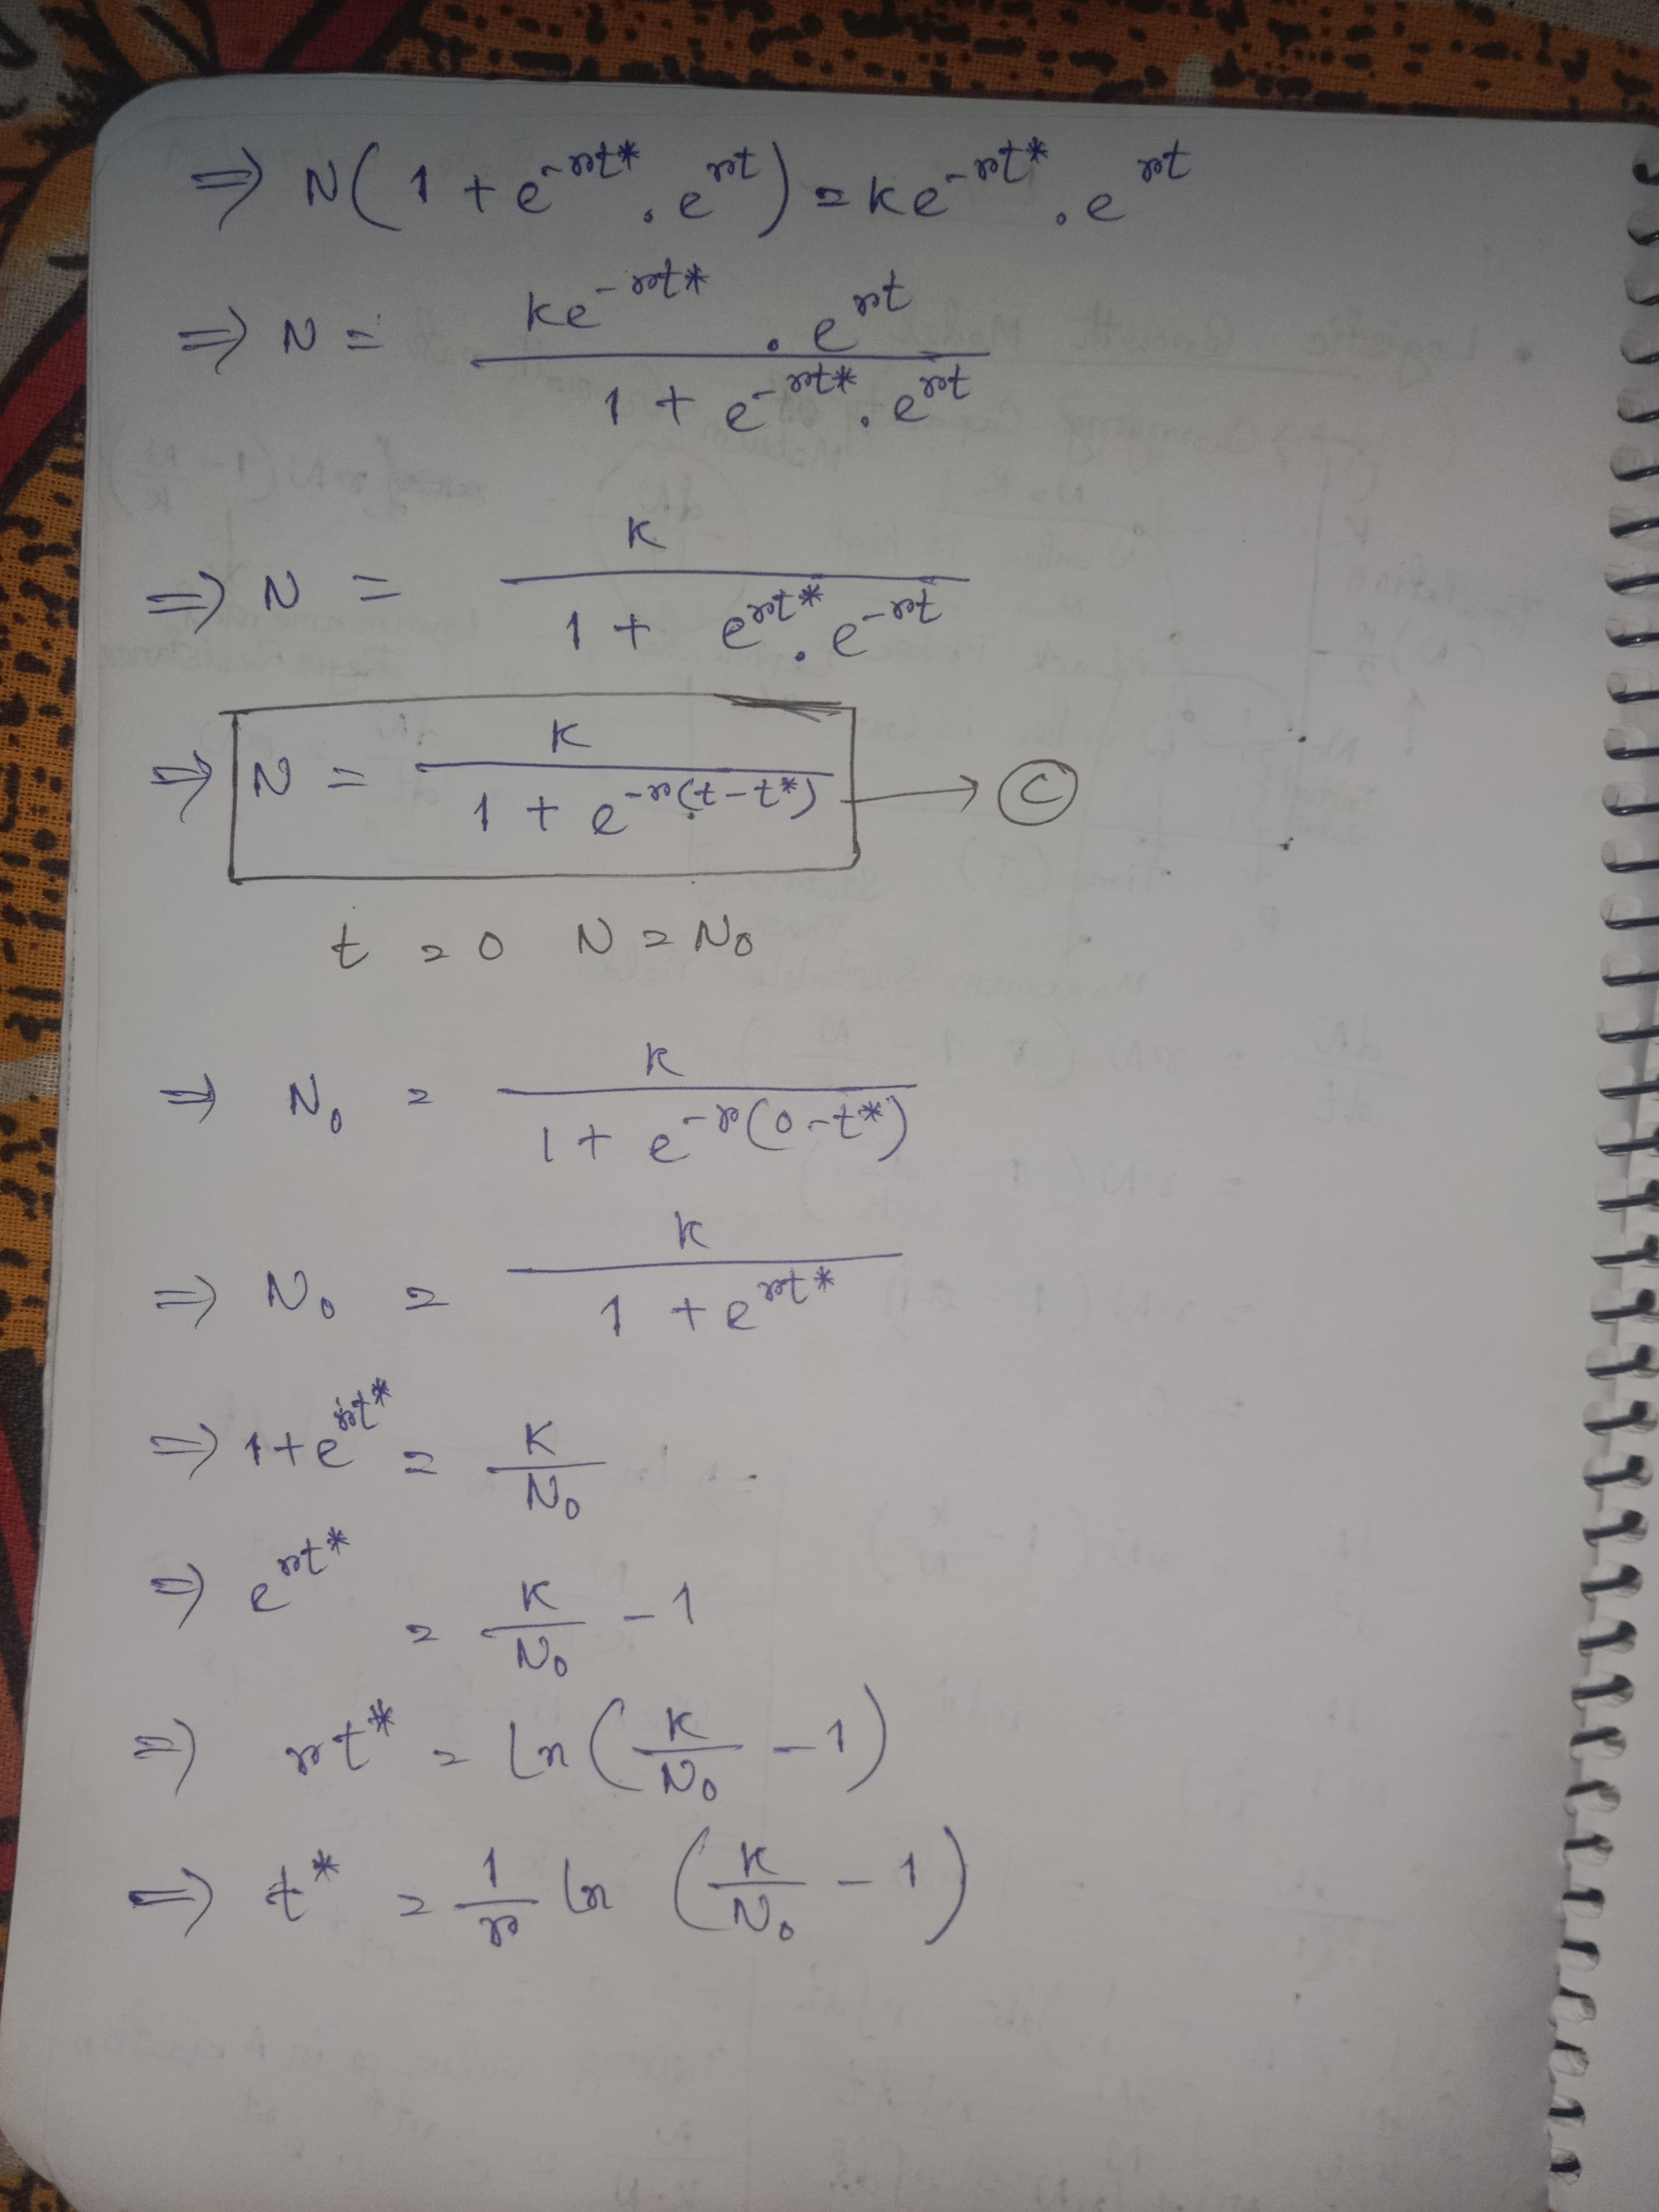 ⇒ N(1 + e^{-rt*} . e^{rt}) = Ke^{-rt*} . e^{rt}
⇒ N = Ke^{-rt*} . e^{rt} / 1 + e^{-rt*} . e^{rt}
⇒ N = K / 1 + e^{rt*} . e^{-rt}
⇒ N = K / 1 + e^{-r(t-t*)} → (C)
t = 0 N = N₀
⇒ N₀ = K / 1 + e^{-r(0-t*)}
⇒ N₀ = K / 1 + e^{rt*}
⇒ 1 + e^{rt*} = K / N₀
⇒ e^{rt*} = K / N₀ - 1
⇒ rt* = Ln (K / N₀ - 1)
⇒ t* = 1 / r Ln (K / N₀ - 1)